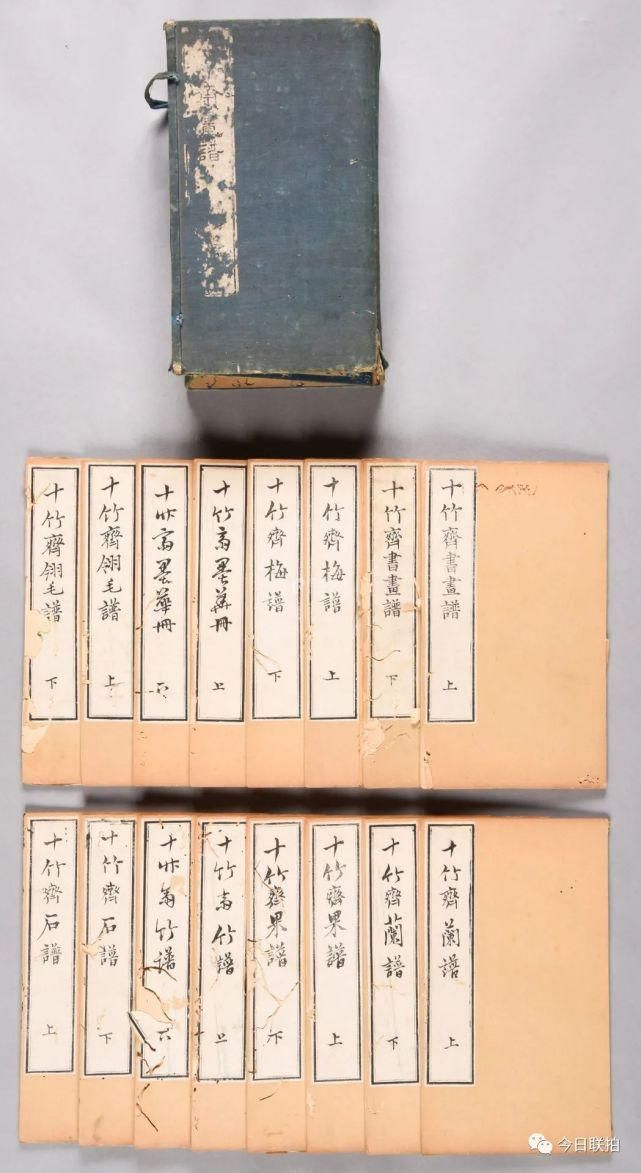 畫譜
十竹齋書畫譜 上
十竹齋書畫譜 下
十竹齋梅譜 上
十竹齋梅譜 下
十竹齋墨華冊 上
十竹齋墨華冊 下
十竹齋翎毛譜 上
十竹齋翎毛譜 下
十竹齋蘭譜 上
十竹齋蘭譜 下
十竹齋果譜 上
十竹齋果譜 下
十竹齋竹譜 上
十竹齋竹譜 下
十竹齋石譜 下
十竹齋石譜 上
今日联拍